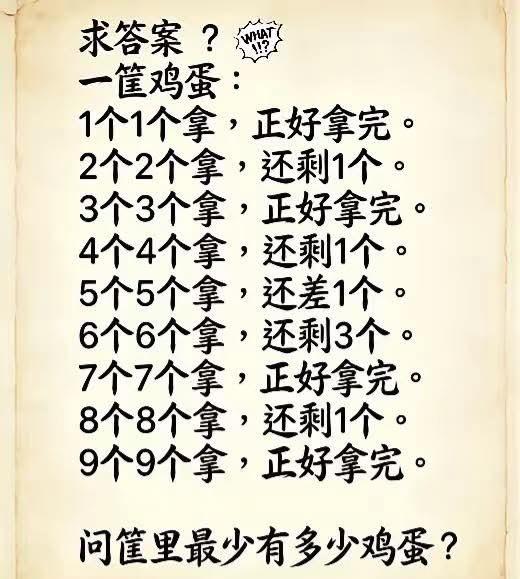 求答案 ? WHAT !!?
一筐鸡蛋：
1个1个拿，正好拿完。
2个2个拿，还剩1个。
3个3个拿，正好拿完。
4个4个拿，还剩1个。
5个5个拿，还差1个。
6个6个拿，还剩3个。
7个7个拿，正好拿完。
8个8个拿，还剩1个。
9个9个拿，正好拿完。
问筐里最少有多少鸡蛋？